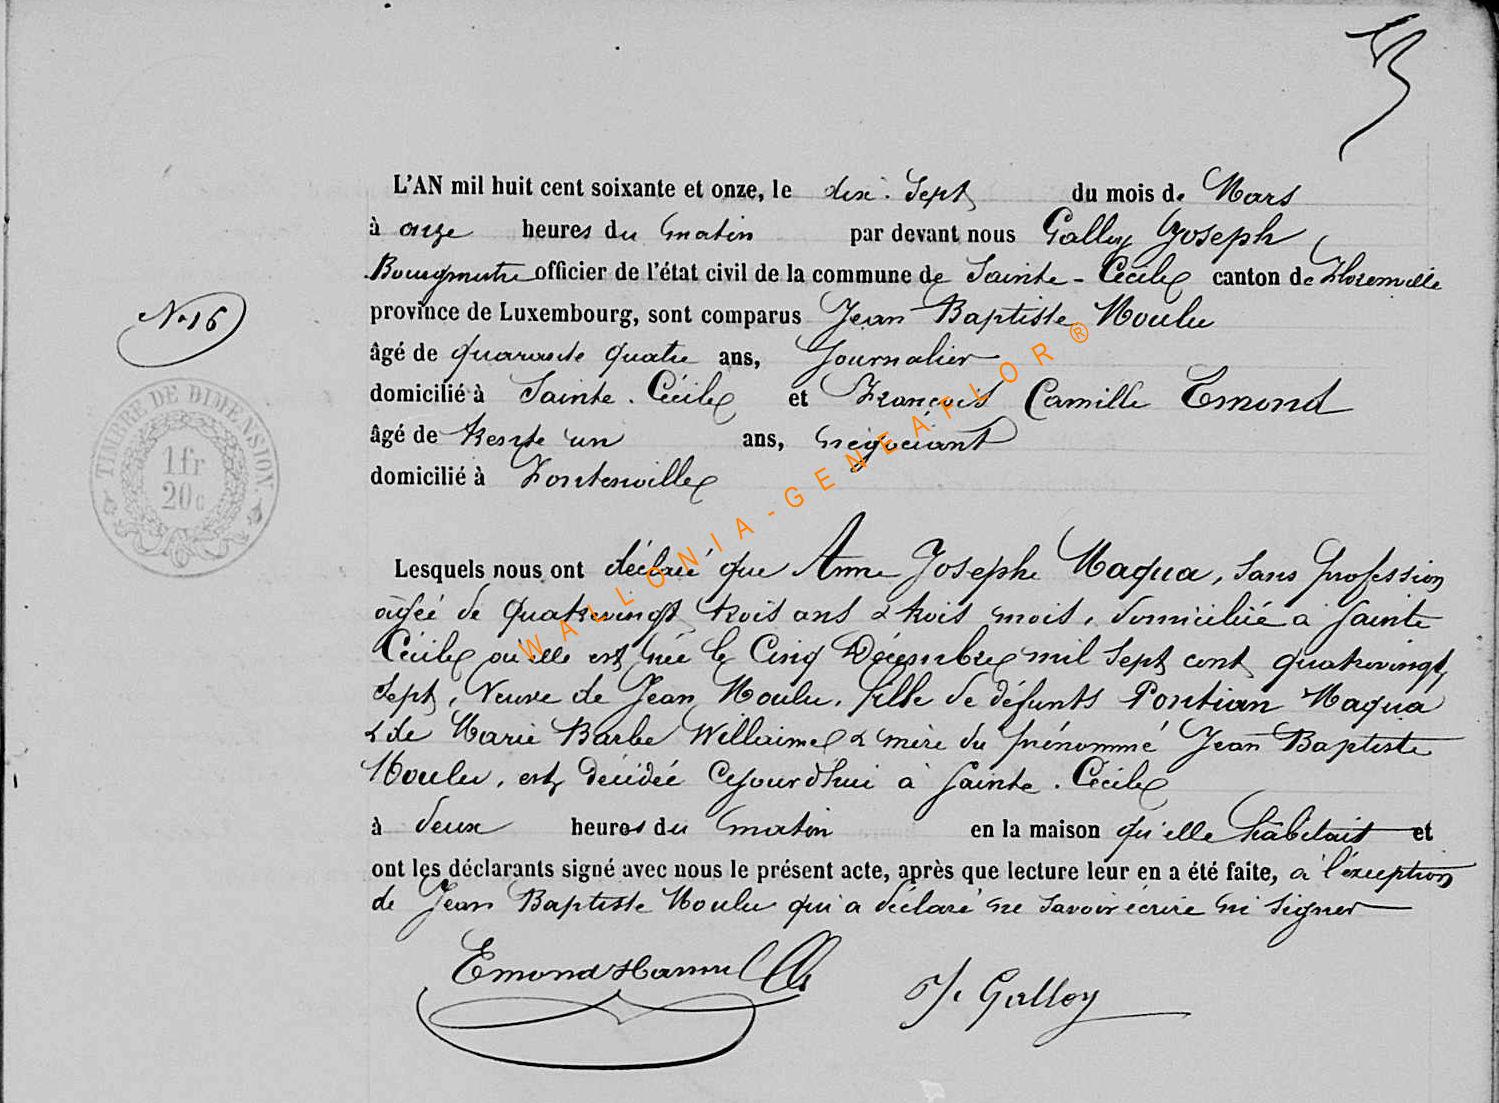 L'AN mil huit cent soixante et onze, le dix-sept du mois de Mars
à onze heures du matin par devant nous Galloy Joseph
Bourgmestre officier de l'état civil de la commune de Sainte-Cécile canton de Florenville
province de Luxembourg, sont comparus Jean Baptiste Moulu
âgé de quarante quatre ans, Journalier
domicilié à Sainte-Cécile et François Camille Emond
âgé de trente un ans, négociant
domicilié à Fontenoille
N. 16
TIMBRE DE DIMENSION
1 fr
20 c
Lesquels nous ont déclaré que Anne Josephe Maqua, sans profession
âgée de quatrevingt trois ans & trois mois, domiciliée à Sainte
Cécile où elle est née le Cinq Décembre mil sept cent quatrevingt
sept, Veuve de Jean Moulu, fille de défunts Pontian Maqua
& de Marie Barbe Willaime & mère du prénommé Jean Baptiste
Moulu, est décédée cejourd'hui à Sainte-Cécile
à deux heures du matin en la maison qu'elle habitait et
ont les déclarants signé avec nous le présent acte, après que lecture leur en a été faite, à l'exception
de Jean Baptiste Moulu qui a déclaré ne savoir écrire ni signer
Emond Hamel J. Galloy
WALLONIA-GENEAFLOR®